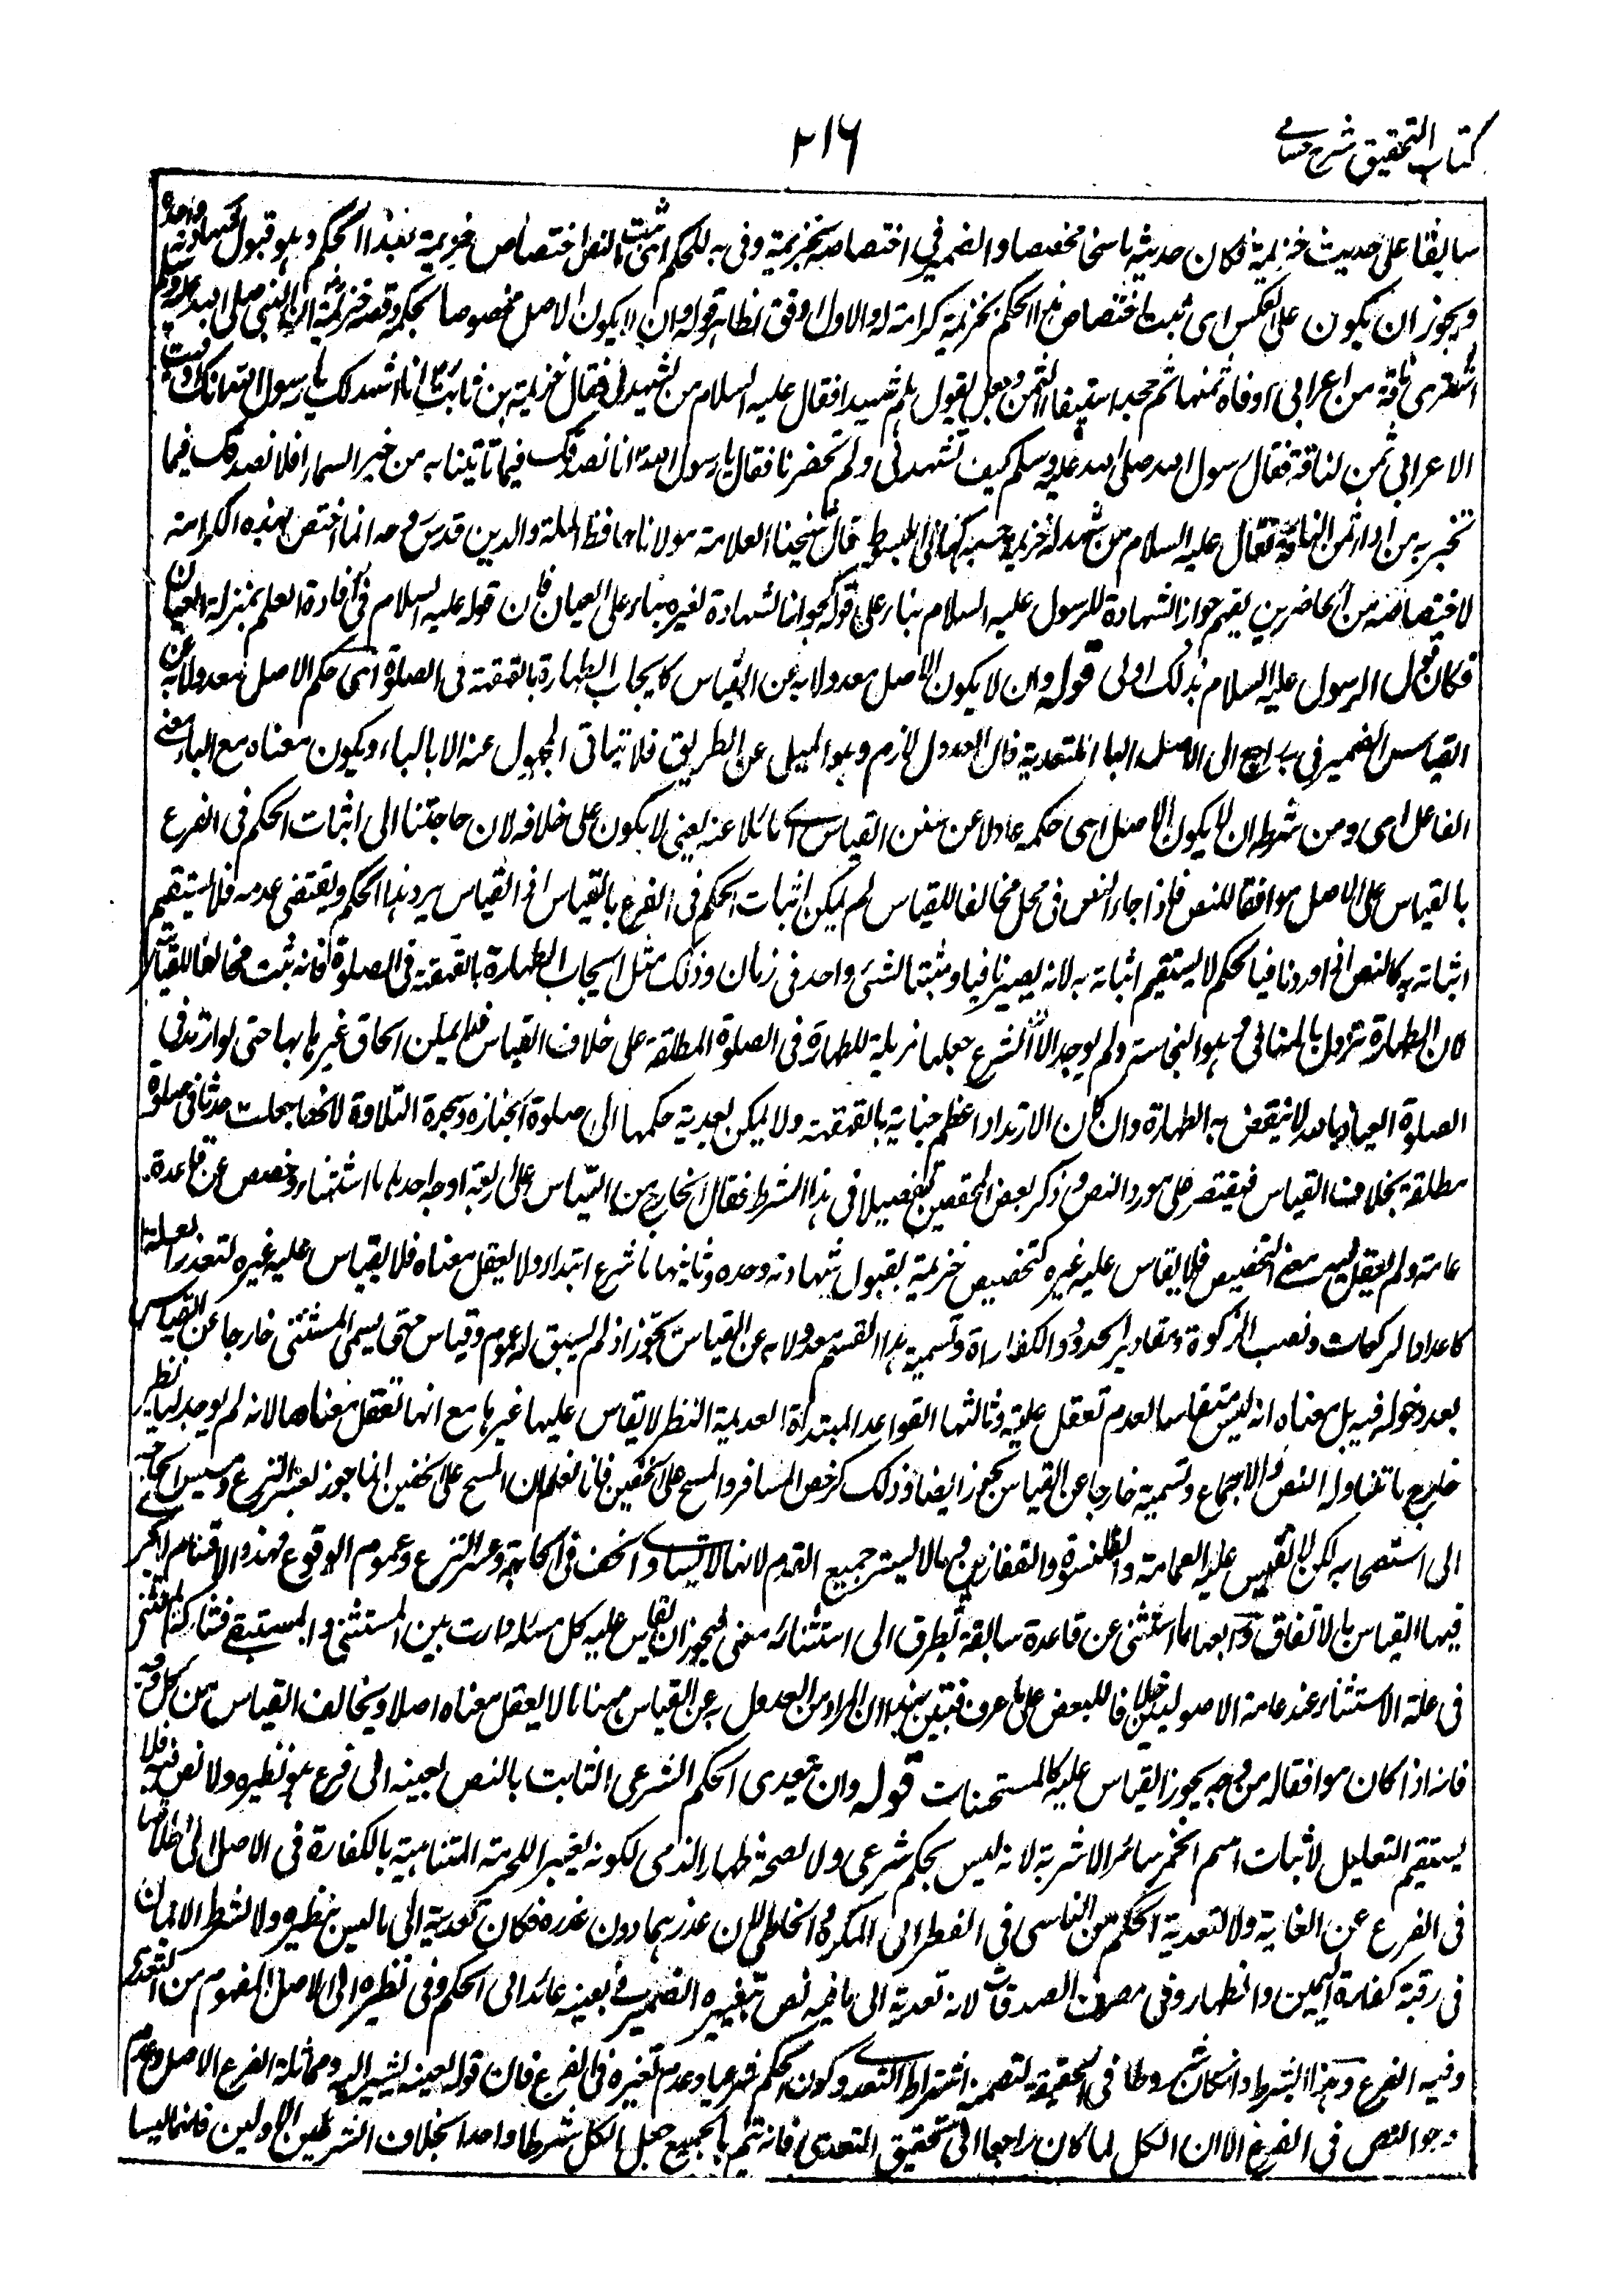 كتاب التحقيق شرح حسامي
٢١٦
سابقا على حديث خزيمة فكان حديثه ناسخا مخصصا والضمير في اختصاصه بخزيمة وفي به للحكم اى ثبت بالنص اختصاص خزيمة بهذا الحكم وهو قبول شهادته وحده
ويجوز ان يكون على العكس اى ثبت اختصاص هذا الحكم بخزيمة كرامة له والاول اوفق لظاهر قوله وان لا يكون الاصل مخصوصا بحكمه وقصة خزيمة ان النبي صلى الله عليه وسلم
اشترى ناقة من اعرابي واوفاه ثمنها ثم جحد استيفاء الثمن وجعل يقول هلم شهيدا فقال عليه السلام من يشهد لى فقال خزيمة بن ثابت انا اشهد لك يا رسول الله انك اوفيت
الاعرابي ثمن الناقة فقال رسول الله صلى الله عليه وسلم كيف تشهد لى ولم تحضرنا فقال يا رسول الله انا نصدقك فيما تأتينا به من خبر السماء افلا نصدقك فيما
تخبر به من اداء ثمن الناقة فقال عليه السلام من شهد له خزيمة فحسبه كذا في المبسوط قال شيخنا العلامة مولانا حافظ الملة والدين قدس روحه انما اختص بهذه الكرامة
لاختصاصه من الحاضرين بفهم جواز الشهادة للرسول عليه السلام بناء على قوله كجواز الشهادة لغيره بناء على العيان فان قوله عليه السلام في افادة العلم بمنزلة العيان
فكان قول الرسول عليه السلام بذلك اولى قوله وان لا يكون الاصل معدولا به عن القياس كايجاب الطهارة بالقهقهة في الصلوة اى حكم الاصل معدولا به عن
القياس الضمير في به راجع الى الاصل والباء للتعدية فان العدول لازم وهو الميل عن الطريق فلا يتأتى المجهول عنه الا بالباء ويكون معناه مع الباء معنى
الفاعل اى ومن شرطه ان لا يكون الاصل اى حكمه عادلا عن سنن القياس اى مائلا عنه يعني لا يكون على خلافه لان حاجتنا الى اثبات الحكم في الفرع
بالقياس على الاصل موافقا للنص فاذا جاء النص في محل مخالفا للقياس لم يمكن اثبات الحكم في الفرع بالقياس اذ القياس يرد هذا الحكم ويقتضى عدمه فلا يستقيم
اثباته به كالنص اذا ورد نافيا لحكم لا يستقيم اثباته به لانه يصير نافيا ومثبتا لشئ واحد في زمان وذلك مثل ايجاب الطهارة بالقهقهة في الصلوة فانه ثبت مخالفا للقياس
لان الطهارة تزول بالمنافي وهو النجاسة ولم يوجد الا ان الشرع جعلها مزيلة للطهارة في الصلوة المطلقة على خلاف القياس فلم يمكن الحاق غيرها بها حتى لو ارتد في
الصلوة العياذ بالله لا ينتقض به الطهارة وان كان الارتداد اعظم جناية بالقهقهة ولا يمكن تعدية حكمها الى صلوة الجنازة وسجدة التلاوة لانها جعلت حدثا في صلوة
مطلقة بخلاف القياس فيقتصر على مورد النص وذكر بعض المحققين تفصيلا في هذا الشرط فقال الخارج من القياس على اربعة اوجه احدها ما استثني وخصص عن قاعدة
عامة ولم يعقل فيه معنى التخصيص فلا يقاس عليه غيره كتخصيص خزيمة بقبول شهادته وحده وثانيها ما شرع ابتداء ولا يعقل معناه فلا يقاس عليه غيره لتعذر العلة
كاعداد الركعات ونصب الزكوة ومقادير الحدود والكفارات وتسمية هذا القسم معدولا به عن القياس تجوز اذ لم يسبق له عموم وقياس حتى يسمى المستثنى خارجا عن القياس
بعد دخوله فيه بل معناه انه ليس منقاسا لعدم تعقل علته وثالثها القواعد المبتدأة العديمة النظير لا يقاس عليها غيرها مع انها تعقل معناها لانه لم يوجد لها نظير
خارج ما تناوله النص والاجماع وتسميته خارجا عن القياس تجوز ايضا وذلك كرخص المسافر والمسح على الخفين فانا نعلم ان المسح على الخفين انما جوز لعسر النزع ومسيس الحاجة
الى استصحابه لكن لا نقيس عليه العمامة والقلنسوة والقفازين وما لا يستر جميع القدم لانها لا تساوي الخف في الحاجة وعسر النزع وعموم الوقوع فهذه الاقسام لا يجري
فيها القياس بالاتفاق ورابعها ما استثني عن قاعدة سابقة تطرق الى استثنائه معنى فيجوز ان يقاس عليه كل مسئلة دارت بين المستثنى والمستبقى فشارك المستثنى
في علة الاستثناء عند عامة الاصوليين خلافا للبعض على ما عرف فتبين بهذا ان المراد من المعدول به عن القياس ههنا ما لا يعقل معناه اصلا ويخالف القياس من كل وجه
فانه اذا كان موافقا له من وجه يجوز القياس عليه كالمستحسنات قوله وان يتعدى الحكم الشرعي الثابت بالنص بعينه الى فرع هو نظيره ولا نص فيه فلا
يستقيم التعليل لاثبات اسم الخمر لسائر الاشربة لانه ليس بحكم شرعي ولا لصحة ظهار الذمي لكونه تغييرا للحرمة المتناهية بالكفارة في الاصل الى اطلاقها
في الفرع عن الغاية ولا لتعدية الحكم من الناسي في الفطر الى المكره والخاطئ لان عذرهما دون عذره فكان تعديته الى ما ليس بنظيره ولا لشرط الايمان
في رقبة كفارة اليمين والظهار وفي مصرف الصدقات لانه تعدية الى ما فيه نص بتغييره الضمير في بعينه عائد الى الحكم وفي نظيره الى الاصل المفهوم من التعدي
وفيه الفرع وهذا الشرط وان كان شروطا في الحقيقة لتضمنه اشتراط التعدي وكون الحكم شرعيا وعدم تغيره في الفرع فان قوله بعينه يشير اليه ومماثلة الفرع الاصل وعدم
وجود النص في الفرع الا ان الكل لما كان راجعا الى تحقيق التعدي فانه يتم بالجميع جعل الكل شرطا واحدا بخلاف الشرطين الاولين فانهما ليسا